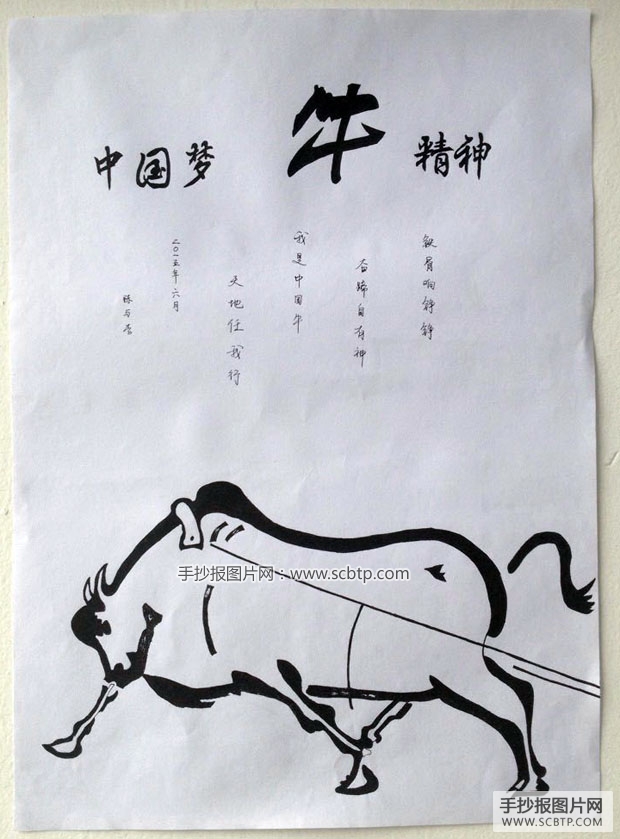 中国梦 牛 精神
骨响铮铮
奋蹄自有神
我是中国牛
天地任我行
二〇一五年六月
手抄报图片网：www.scbtp.com
手抄报图片网
WWW.SCBTP.COM